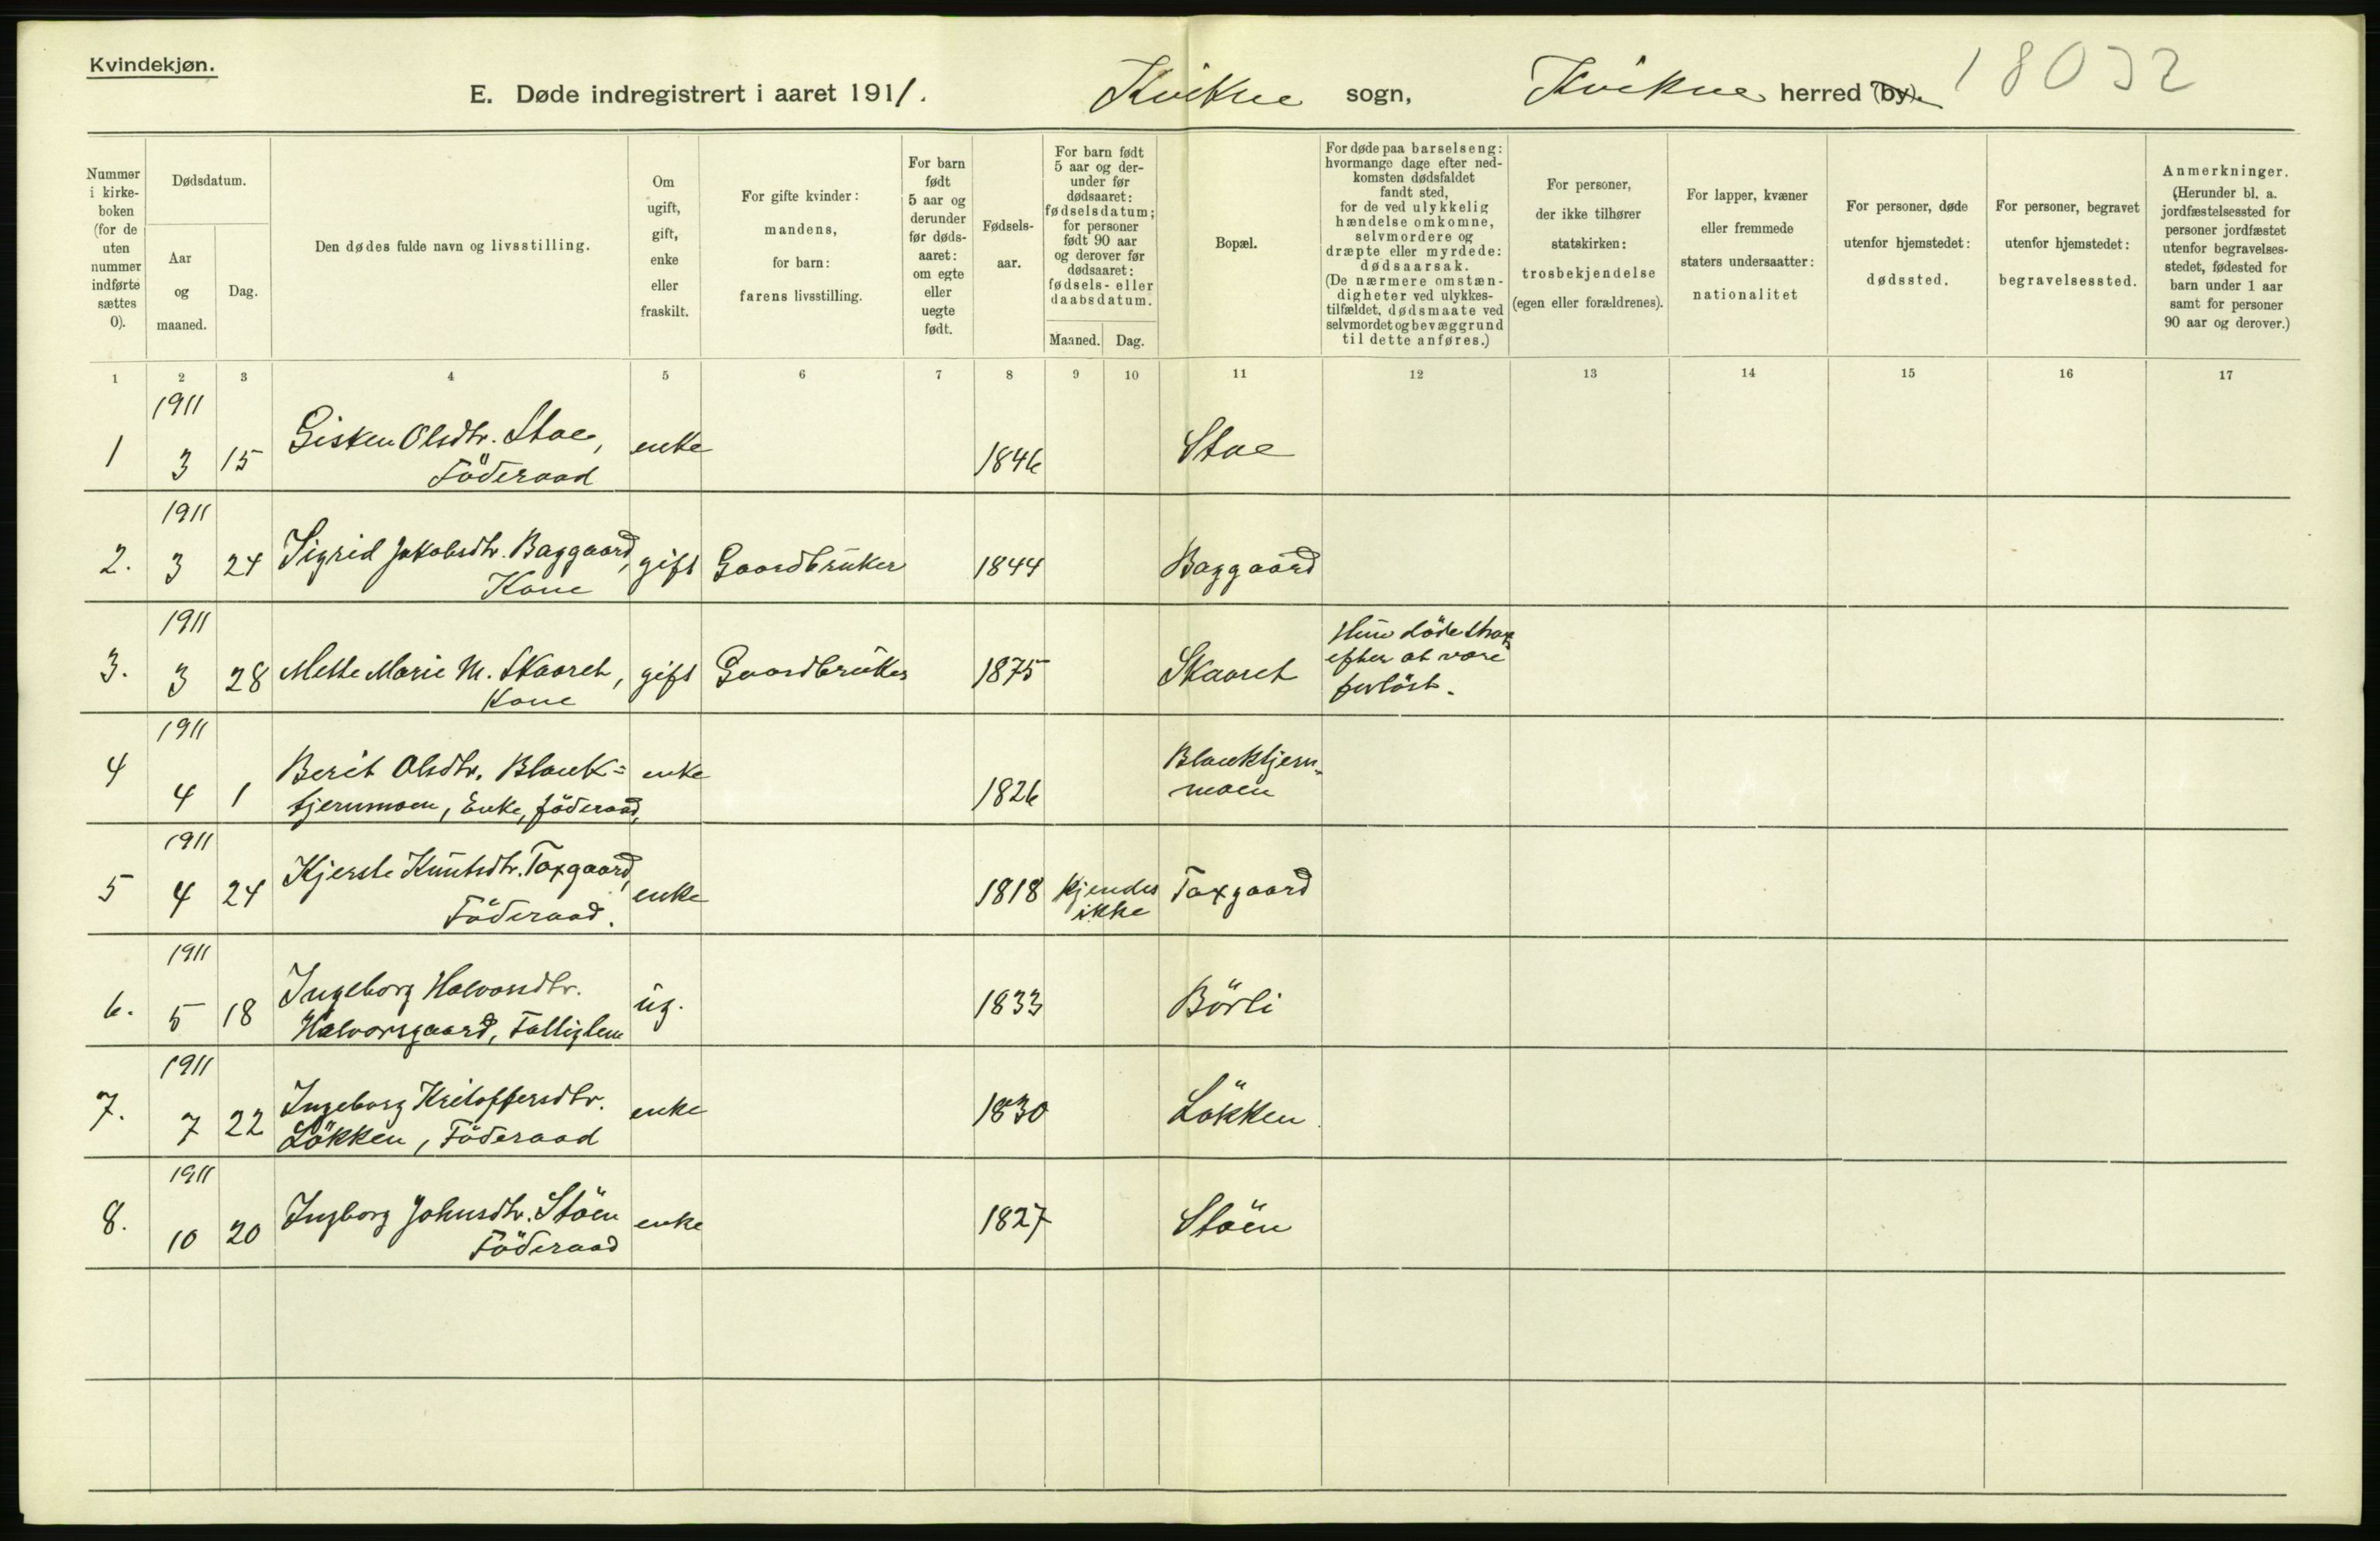 Kvindekjøn.
E. Døde indregistrert i aaret 1911. Kvikne sogn, Kvikne herred (by). 18032
Nummer i kirke-boken (for de uten nummer indførte sættes 0).
Dødsdatum.
Aar og maaned.
Dag.
Den dødes fulde navn og livsstilling.
Om ugift, gift, enke eller fraskilt.
For gifte kvinder: mandens, for barn: farens livsstilling.
For barn født 5 aar og derunder før døds-aaret: om egte eller uegte født.
Fødsels-aar.
For barn født 5 aar og der-under før dødsaaret: fødselsdatum; for personer født 90 aar og derover før dødsaaret: fødsels- eller daabsdatum.
Maaned. Dag.
Bopæl.
For døde paa barselseng: hvormange dage efter ned-komsten dødsfaldet fandt sted, for de ved ulykkelig hændelse omkomne, selvmordere og dræpte eller myrdede: dødsaarsak. (De nærmere omstæn-digheter ved ulykkes-tilfældet, dødsmaate ved selvmordet og bevæggrund til dette anføres.)
For personer, der ikke tilhører statskirken: trosbekjendelse (egen eller forældrenes).
For lapper, kvæner eller fremmede staters undersaatter: nationalitet
For personer, døde utenfor hjemstedet: dødssted.
For personer, begravet utenfor hjemstedet: begravelsessted.
Anmerkninger. (Herunder bl. a. jordfæstelsessted for personer jordfæstet utenfor begravelses-stedet, fødested for barn under 1 aar samt for personer 90 aar og derover.)
1 2 3 4 5 6 7 8 9 10 11 12 13 14 15 16 17
1911
1 3 15 Gisken Olsdtr. Stae, enke 1846 Stae
Föderaad
1911
2. 3 24 Sigrid Jakobsdtr. Baggaard, gift Gaardbrüker 1844 Baggaard
Kone
1911
3. 3 28 Mette Marie M. Skaaret, gift Gaardbrüker 1875 Skaaret Hün döde strax
efter at være
forlöst.
Kone
1911
4 4 1 Berit Olsdtr. Blank= enke 1826 Blanktjern-
tjernmoen, Enke, föderaad, moen
1911
5 4 24 Kjerste Knütsdtr. Taxgaard, enke 1818 Kjendes ikke Taxgaard
Föderaad.
1911
6. 5 18 Ingeborg Halvorsdtr. üg. 1833 Börli
Halvorsgaard, Fattiglem
1911
7. 7 22 Ingeborg Kristoffersdtr. enke 1830 Lökken
Lökken, Föderaad
1911
8. 10 20 Ingborg Johnsdtr. Stöen enke 1827 Stöen
Föderaad